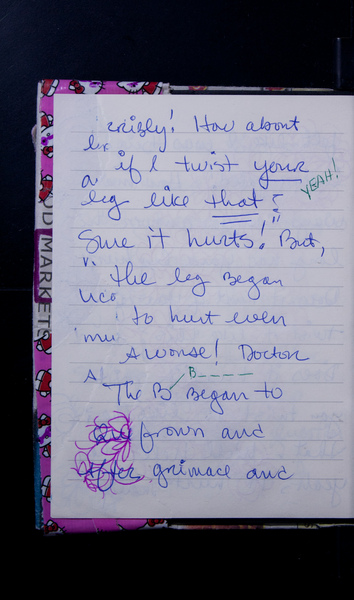 crizly! How about
if I twist your
YEAH!
leg like that?!!
Sure it hurts! But,
the leg began
uco
to hurt even
mu
A wonse! Doctor
B_ _ _ _ _
A
The B Began to
frown and
grimace and
OD MARKET